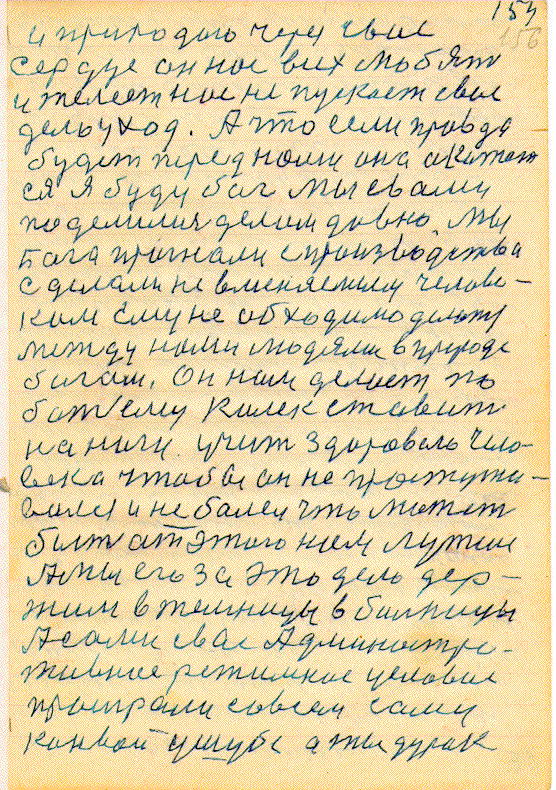 154
156
и природою через свае
сердце он нас всех любят
и желеет нас не пускает свае
дело уход. А что если правда
будет перед нами она акажет
ся Я буду бог Мы свами
поделилися делом давно. Мы
Бога прогнали спроизводства
сделали не вменяемым челове-
ком Ему не обходимо делать
между нами людями вприроде
богам. Он нам делает по
божему калек ставит
на ноги. учит здоровова чело-
века чтобы он не простужи-
вался и не болел что может
быть ат этого нам лутши
Амы его за это дело дер-
жим втемницы в болницы
Асами свае Администра-
тивнае режимнае условие
проиграли совсем сами
конвой ушубе ажи дурак